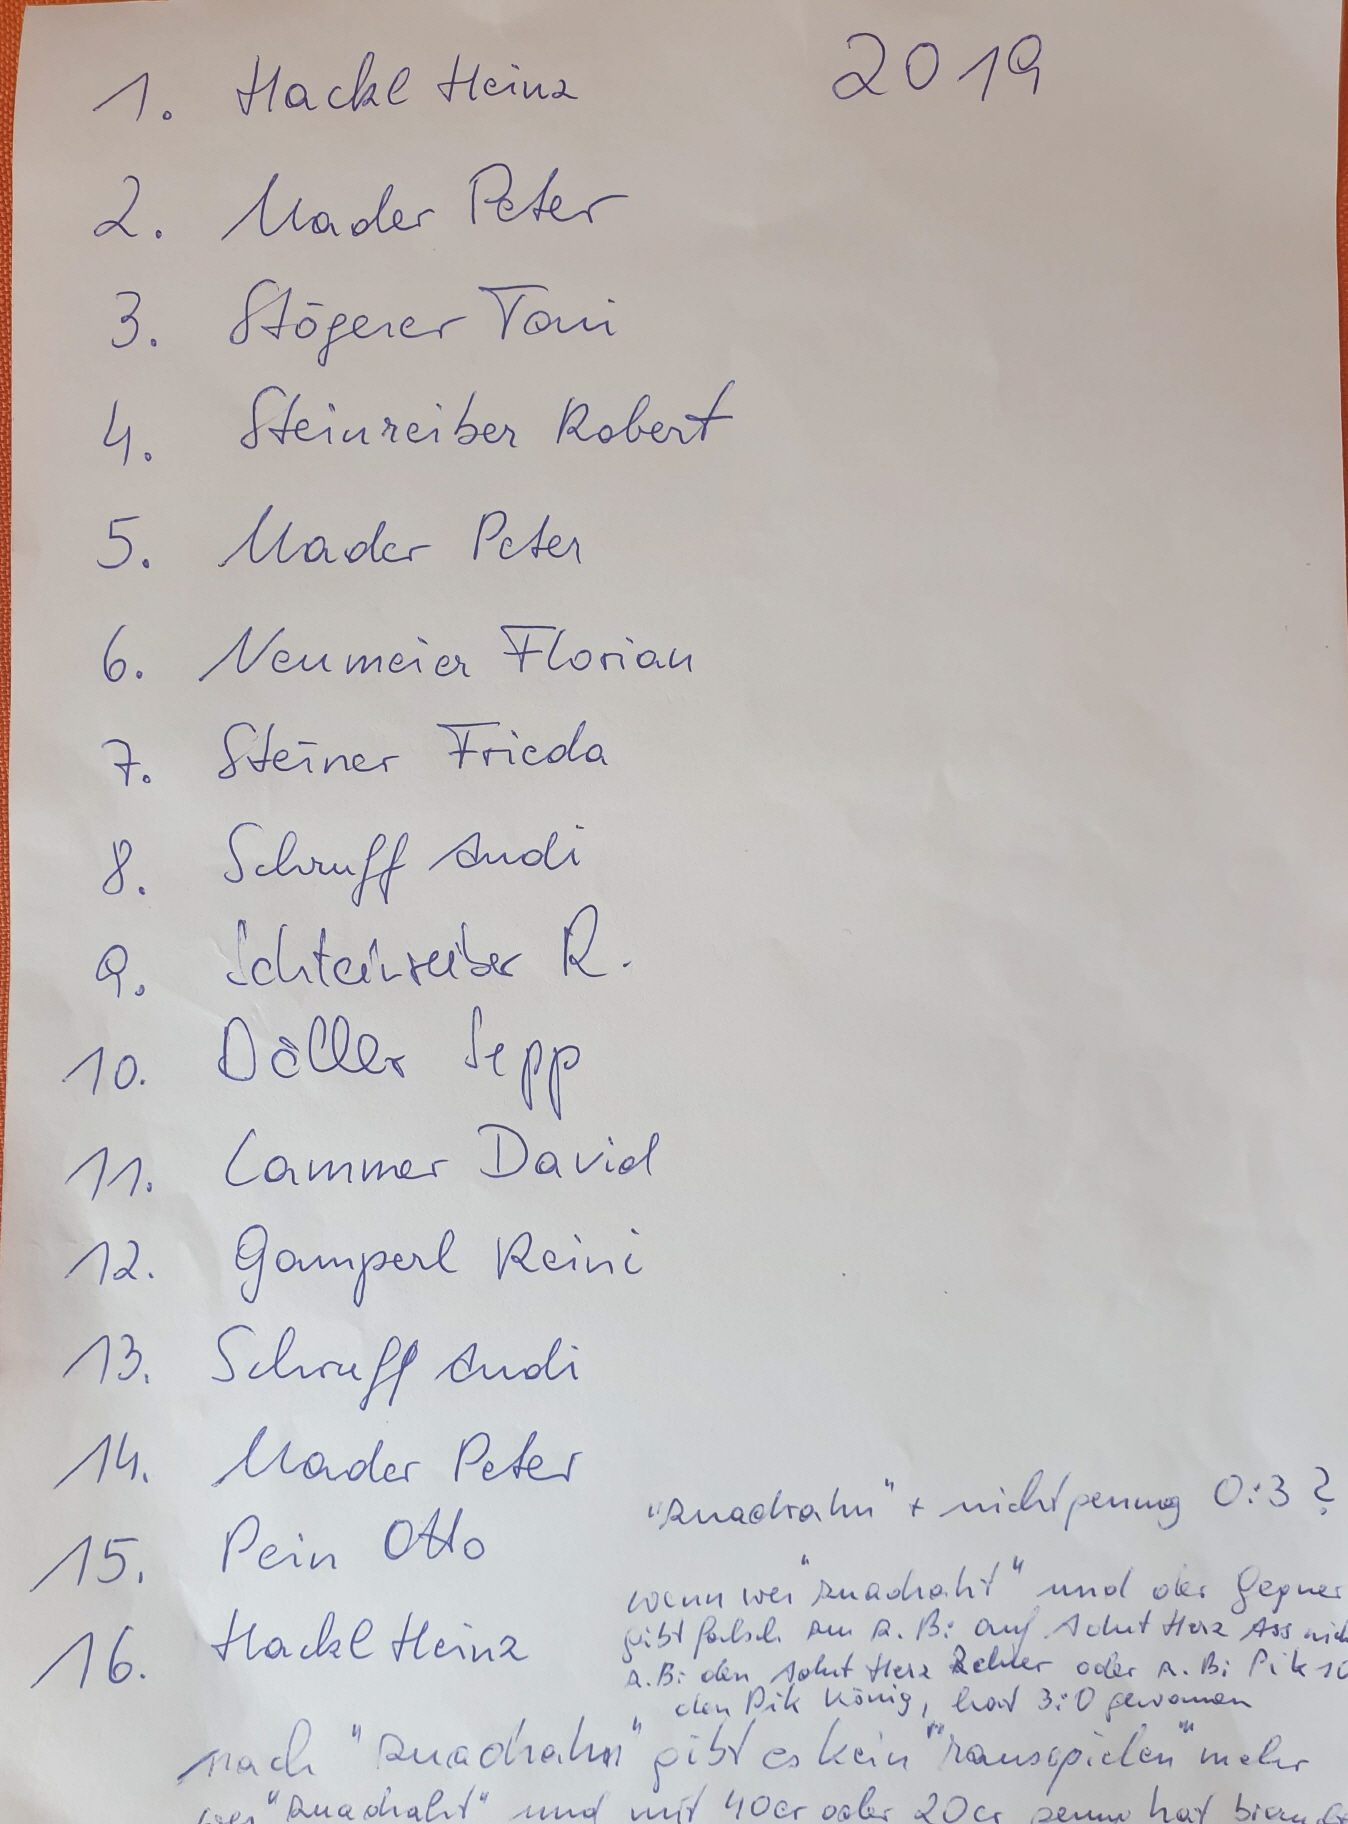 2019
1. Hackl Heinz
2. Mader Peter
3. Stögerer Toni
4. Steinreiber Robert
5. Mader Peter
6. Neumeier Florian
7. Steiner Frieda
8. Schruff Andi
9. Schteinreiber R.
10. Döller Sepp
11. Lammer David
12. Gamperl Reini
13. Schruff Andi
14. Mader Peter
"zuadrahn" + nicht genung 0:3?
15. Pein Otto
wenn wer "zuadraht" und der Gegner
gibt falsch zu z.B: auf Adut Herz Ass
16. Hackl Heinz
z.B: den Adut Herz Zehner oder z.B: Pik 10
den Pik König, hat 3:0 gewonnen
nach "zuadrahn" gibt es kein "rausspielen" mehr
wer "zuadraht" und mit 40er oder 20er genug hat